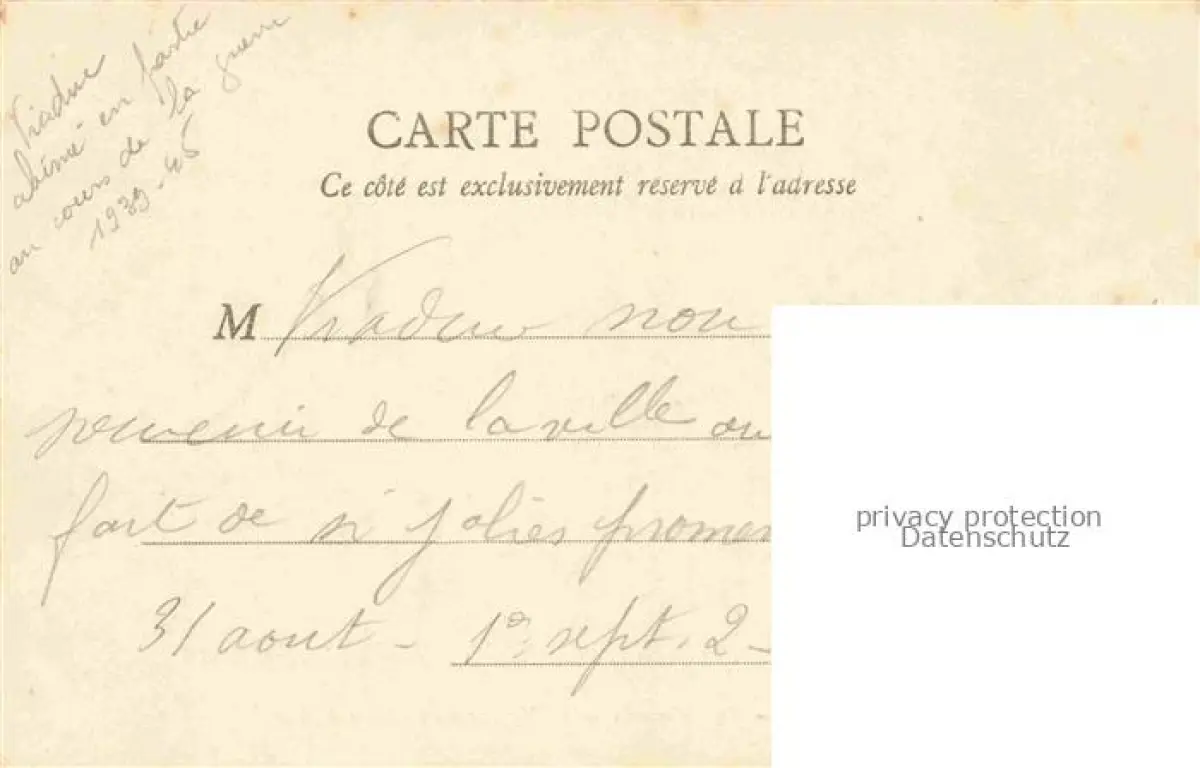 Viaduc
abîmé en partie
au cours de la guerre
1939-45
CARTE POSTALE
Ce côté est exclusivement réservé à l'adresse
M Viaduc non
souvenir de la ville ou
fait de si jolies promen
31 aout - 1er sept. 2 -
privacy protection
Datenschutz